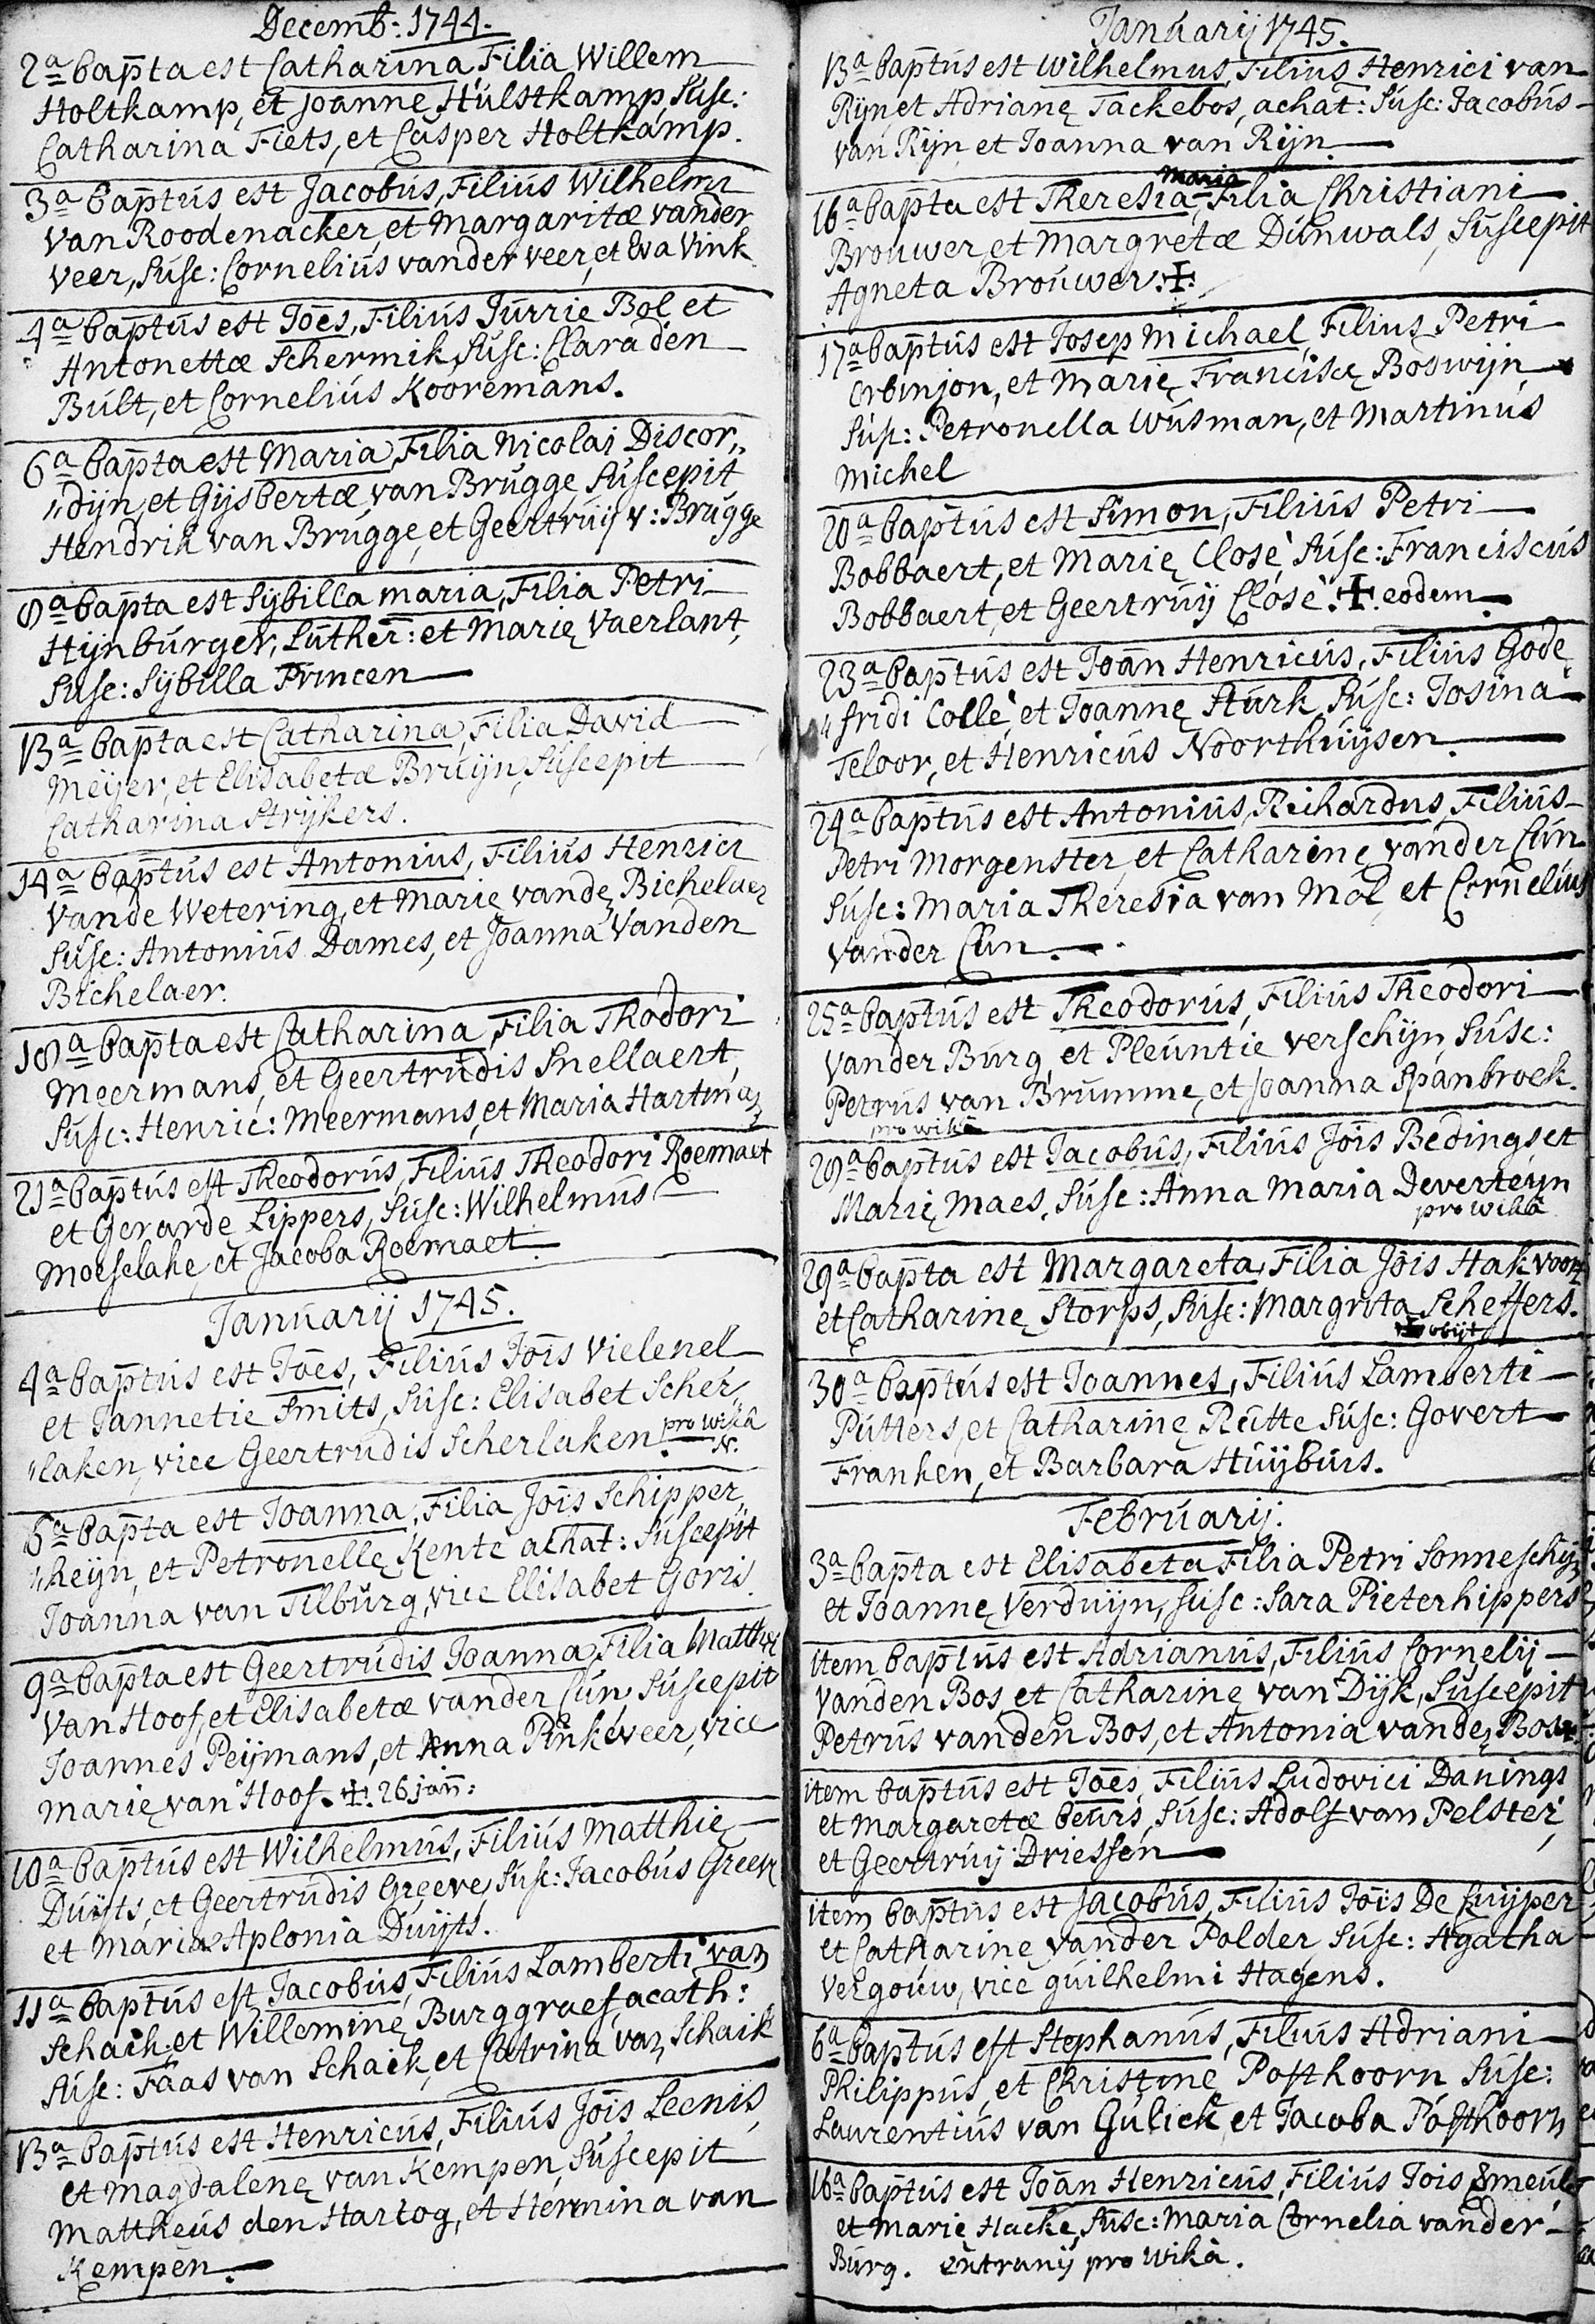 Decemb: 1744.
2a bap̄ta est Catharina, Filia Willem
Holtkamp, et Joanne Hulstkamp, Susc:
Catharina Fiets, et Casper Holtkamp.
3a bap̄tus est Jacobus, Filius Wilhelmi
Van Roodenacker, et Margaritæ vander
Veer, Susc: Cornelius vander veer, et Eva Vink
4a bap̄tus est Joēs, Filius Jurrie Bol et
Antonettæ Schermik, Susc: Clara den
Bult, et Cornelius Kooremans.
6a bap̄ta est Maria, Filia Nicolai Discor„
„dijn, et Gijsbertæ van Brugge, Suscepit
Hendrik van Brugge, et Geertruij v: Brugge
8a bap̄ta est Sijbilla maria, Filia Petri
Hijnburger, Luther: et Marię Vaerlant,
Susc: Sijbilla Princen
13a bap̄ta est Catharina, Filia David
Meijer, et Elisabetæ Bruijn, Suscepit
Catharina Strijkers.
14a bap̄tus est Antonius, Filius Henrici
Vande Wetering, et Marię vande Bichelaer
Susc: Antonius Dames, et Joanna Vanden
Bichelaer.
18a bap̄ta est Catharina, Filia Thodori
Meermans, et Geertrudis Snellaert,
Susc: Henric: Meermans, et Maria Hartman
21a bap̄tus est Theodorus, Filius Theodori Roemaet
et Gerardę Lippers, Susc: Wilhelmus
Moeselake, et Jacoba Roemaet.
Januarij 1745.
4a bap̄tus est Joēs, Filius Jōis Vielenel
et Jannetie Smits, Susc: Elisabet Scher„
„laken, vice Geertrudis Scherlaken. pro wikâ
N.
6a bap̄ta est Joanna, Filia Jōis Schipper„
„heijn, et Petronellę Kente achat: Suscepit
Joanna van Tilburg, vice Elisabet Goris.
9a bap̄ta est Geertrudis Joanna, Filia Matthei
Van Hoof, et Elisabetæ vander Cun, Suscepit
Joannes Peijmans, et Anna Pinkeveer, vice
Marię van Hoof. ✝. 26 jan̄:
10a bap̄tus est Wilhelmus, Filius Matthię
Duijts, et Geertrudis Greeve, Susc: Jacobus Greeve
et Maria Aplonia Duijts.
11a bap̄tus est Jacobus, Filius Lamberti van
Schaik, et Willeminę Burggraef, acath:
Susc: Faas van Schaick, et Catrina van Schaik
13a bap̄tus est Henricus, Filius Jōis Leenis,
et Magdalenę van Kempen, Suscepit
Mattheus den Hartog, et Hermina van
Kempen.
Januarij 1745.
13a bap̄tus est Wilhelmus, Filius Henrici van
Rijn, et Adrianę Tackebos, achat: Susc: Jacobus
van Rijn et Joanna van Rijn.
Maria
16a bap̄ta est Theresia, Filia Christiani
Brouwer, et Margretæ Dunwals, Suscepit
Agneta Brouwer. ✝.
17a bap̄tus est Josep Michael, Filius Petri
Orbinjon, et Marię Franciscę Boswijn,
Susc: Petronella Wusman, et Martinus
Michel
20a bap̄tus est Simon, Filius Petri
Bobbaert, et Marię Closé, Susc: Franciscus
Bobbaert, et Geertruij Closé. ✝. eodem
23a bap̄tus est Joān Henricus, Filius Gode„
„fridi Collé, et Joannę Sturk, Susc: Josina
Teloor, et Henricus Noorthuijsen.
24a bap̄tus est Antonius, Richardus, Filius
Petri Morgenster, et Catharinę vander Cun
Susc: Maria Theresia van Mol, et Cornelius
Vander Cun.
25a bap̄tus est Theodorus, Filius Theodori
Vander Burg, et Pleuntie Verschijn, Susc:
Petrus van Brumme, et Joanna Spanbroek.
pro wika
28a bap̄tus est Jacobus, Filius Jōis Bedings et
Marię Maes, Susc: Anna Maria Deverteijn
pro wika
29a bap̄ta est Margareta, Filia Jōis Hakvoort
et Catharinę Storps, Susc: Margrita Scheffers.
✝ obijt
30a bap̄tus est Joannes, Filius Lamberti
Putters, et Catharinę Rutte Susc: Govert
Franken, et Barbara Huijbuis.
Februarij.
3a bap̄ta est Elisabeta Filia Petri Sonneschijn
et Joannę Verduijn, Susc: Sara Pieterhippers
item bap̄tus est Adrianus, Filius Cornelij
Vanden Bos, et Catharinę van Dijk, Suscepit
Petrus vanden Bos, et Antonia vanden Bos
item bap̄tus est Joēs, Filius Ludovici Danings
et Margaretæ Beurs, Susc: Adolf van Pelster,
et Geertruij Driessen
item bap̄tus est Jacobus, Filius Jōis De Cuijper
et Catharinę vander Polder, Susc: Agatha
Vergouw, vice guilhelmi Hagens.
6a bap̄tus est Stephanus, Filius Adriani
Philippus, et Christinę Posthoorn Susc:
Laurentius van Gulick, et Jacoba Posthoorn
16a bap̄tus est Joān Henricus, Filius Jois Smeuls
et Marię Hacke, Susc: Maria Cornelia vander
Burg. pro wikâ.